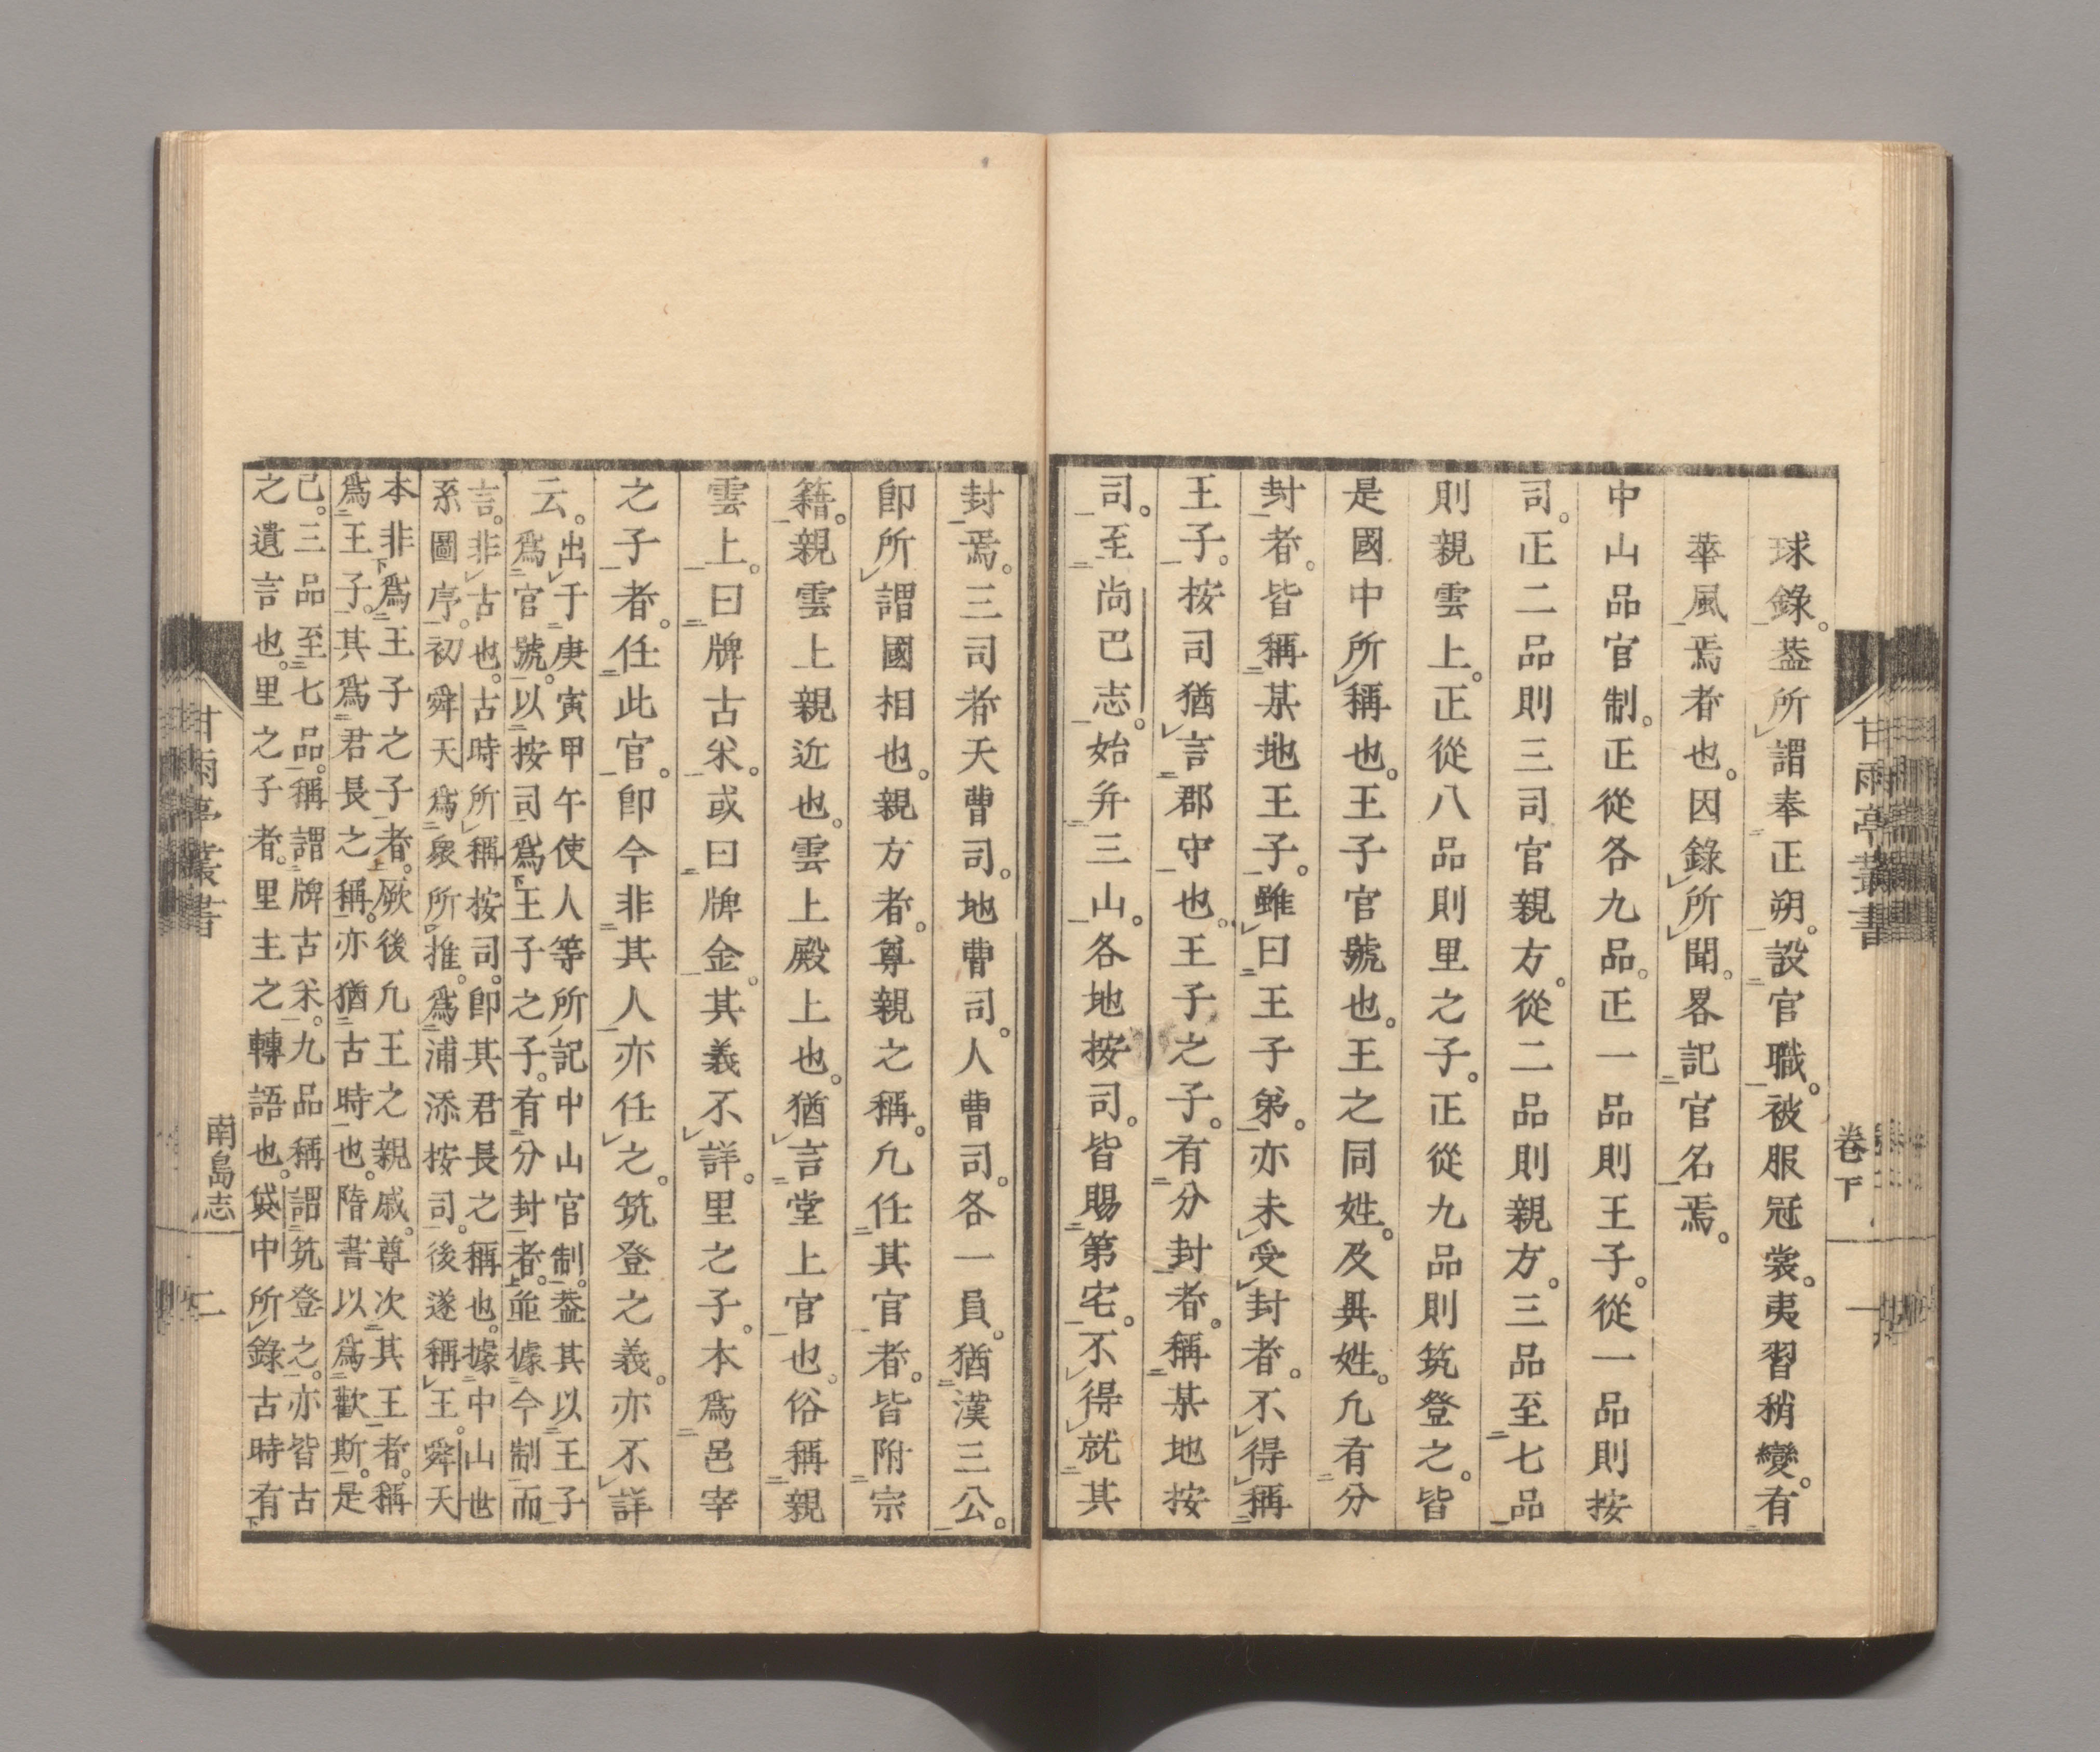 甘雨亭叢書
卷下
一
球錄。葢所謂奉正朔。設官職。被服冠裳。夷習稍變。有
華風焉者也。因錄所聞。畧記官名焉。
中山品官制。正從各九品。正一品則王子。從一品則按
司。正二品則三司官親方。從二品則親方。三品至七品
則親雲上。正從八品則里之子。正從九品則筑登之。皆
是國中所稱也。王子官號也。王之同姓。及異姓。凢有分
封者。皆稱某地王子。雖曰王子弟。亦未受封者。不得稱
王子。按司猶言郡守也。王子之子。有分封者。稱某地按
司。至尚巴志。始并三山。各地按司。皆賜第宅。不得就其
封焉。三司者天曹司。地曹司。人曹司。各一員。猶漢三公。
卽所謂國相也。親方者。尊親之稱。凢任其官者。皆附宗
籍。親雲上親近也。雲上殿上也。猶言堂上官也。俗稱親
雲上。曰牌古米。或曰牌金。其義不詳。里之子。本爲邑宰
之子者。任此官。卽今非其人亦任之。筑登之義。亦不詳
云。
出于庚寅甲午使人等所記中山官制。葢其以王子
爲官號。以按司爲王子之子。有分封者。並據今制而
言。非古也。古時所稱按司。卽其君長之稱也。據中山世
系圖序。初舜天爲衆所推。爲浦添按司。後遂稱王。舜天
本非爲王子之子者。厥後凢王之親戚。尊次其王者。稱
爲王子。其爲君長之稱。亦猶古時也。隋書以爲歡斯。是
已。三品至七品。稱謂牌古米。九品稱謂筑登之。亦皆古
之遺言也。里之子者。里主之轉語也。袋中所錄古時有
甘雨亭叢書
南島志
二